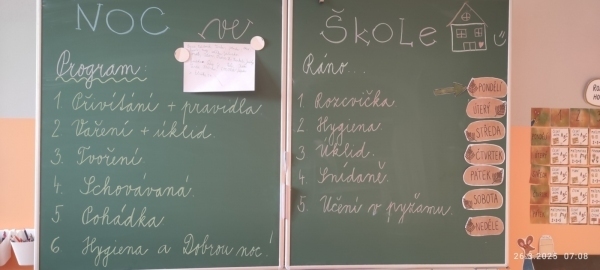 NOC ve ŠKOLE
Program:
1. Přivítání + pravidla
2. Vaření + úklid
3. Tvoření
4. Schovávaná
5. Pohádka
6. Hygiena a Dobrou noc!
Ráno...
1. Rozcvička
2. Hygiena
3. Úklid
4. Snídaně
5. Učení v pyžamu
PONDĚLÍ
ÚTERÝ
STŘEDA
ČTVRTEK
PÁTEK
SOBOTA
NEDĚLE
26.5.2025 07:08